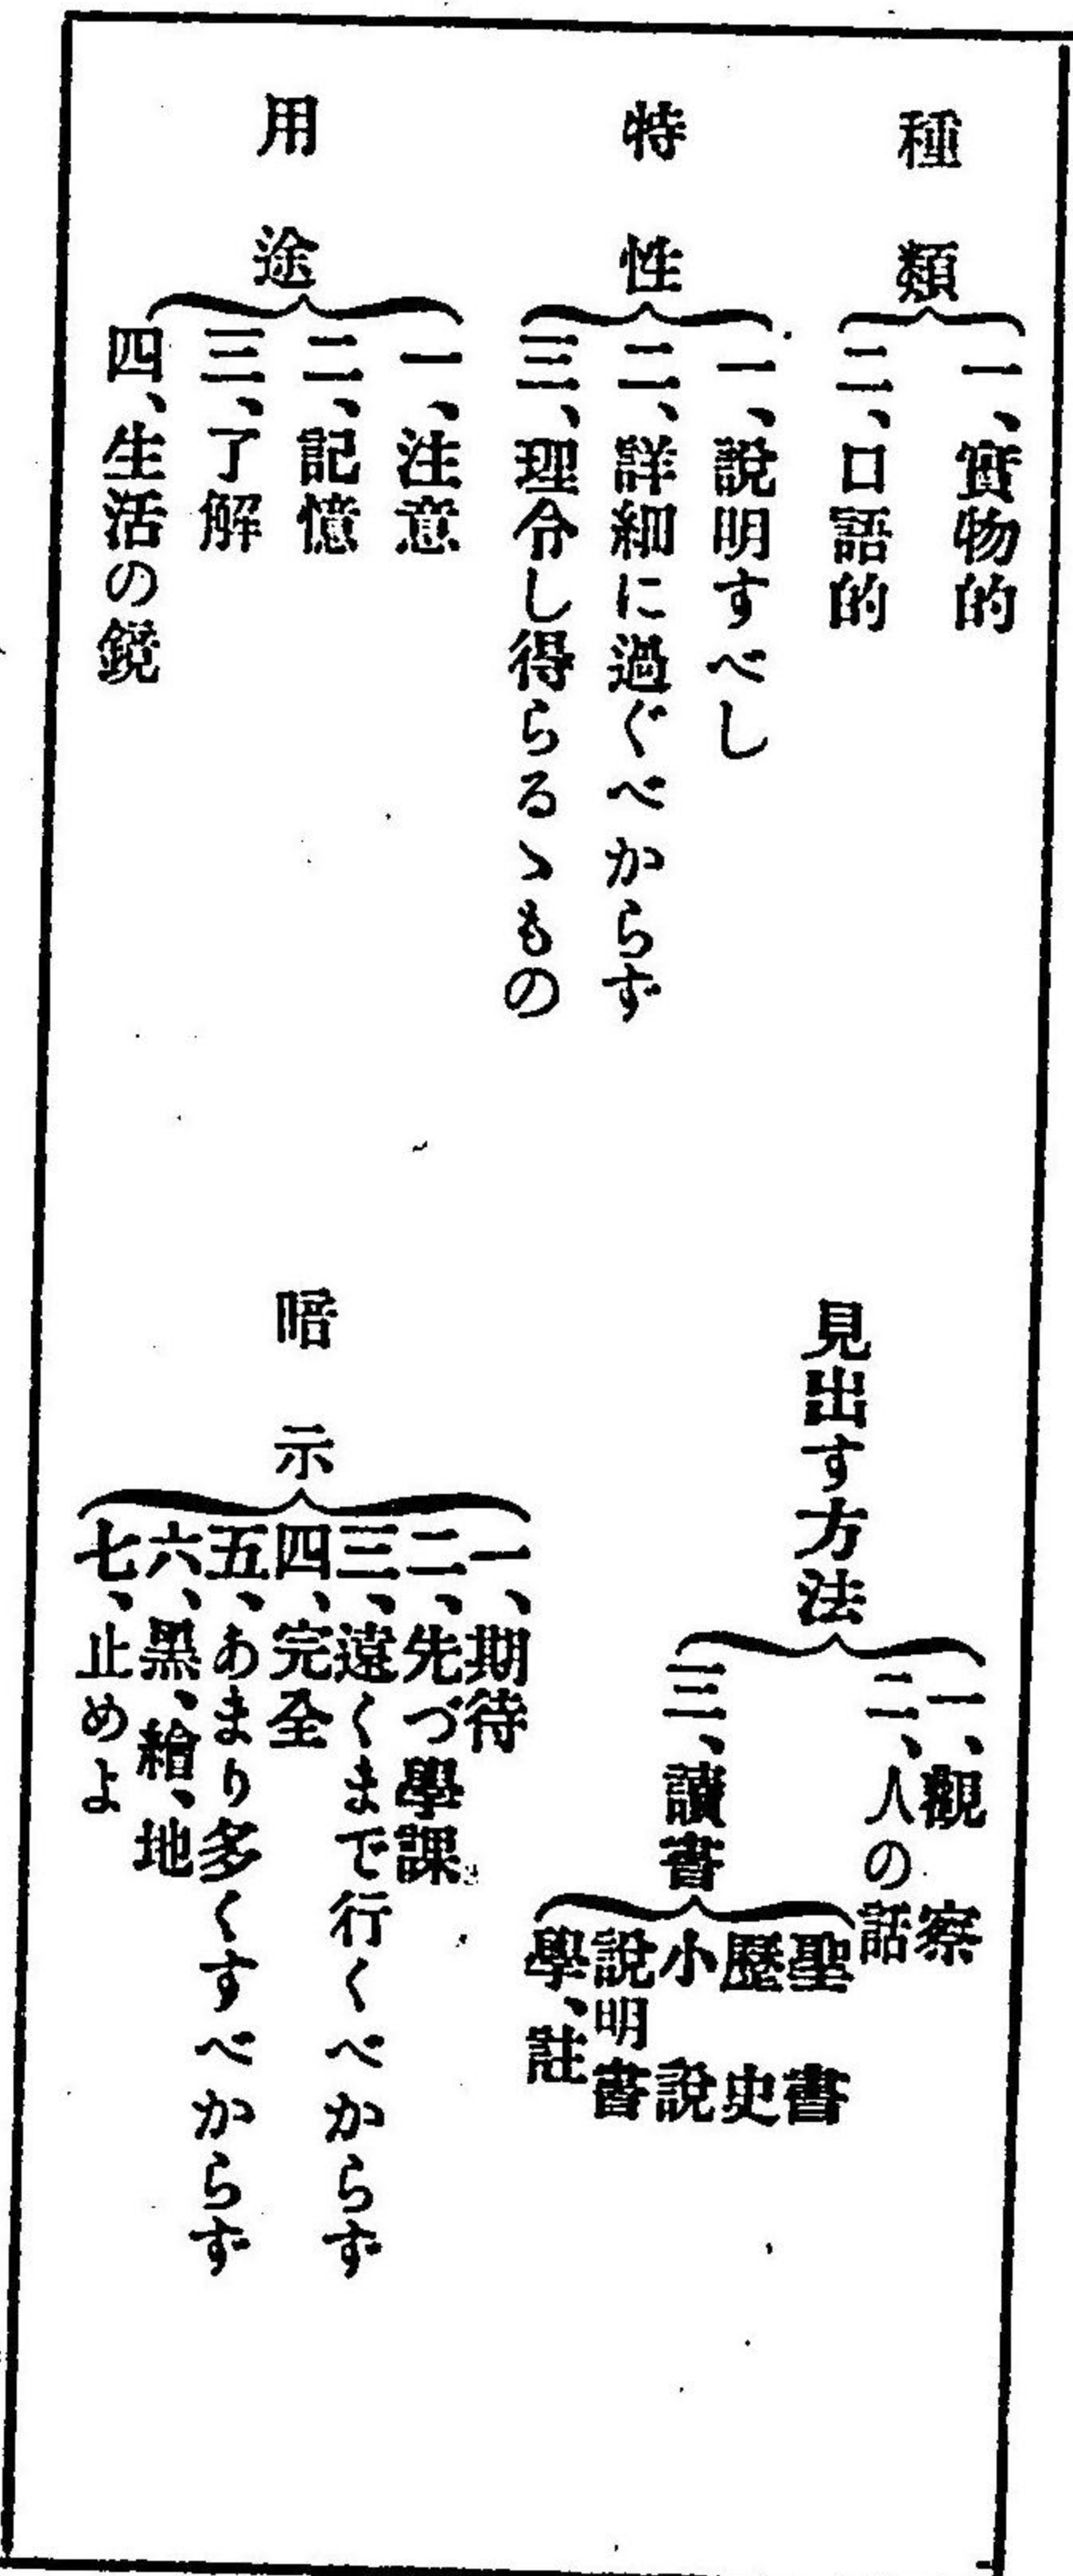 種類
一、實物的
二、口語的
特性
一、說明すべし
二、詳細に過ぐべからず
三、理令し得らるゝもの
用途
一、注意
二、記憶
三、了解
四、生活の鏡
見出す方法
一、觀察
二、人の話
三、讀書
聖書
歷史
小說
說明書
學、註
暗示
一、期待
二、先づ學課
三、遠くまで行くべからず
四、完全
五、あまり多くすべからず
六、黑、繪、地
七、止めよ